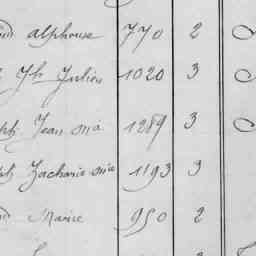 Alphonse 770 2
Jh Julien 1020 3
Jean Ma 1289 3
Zacharie 1193 3
Marice 950 2